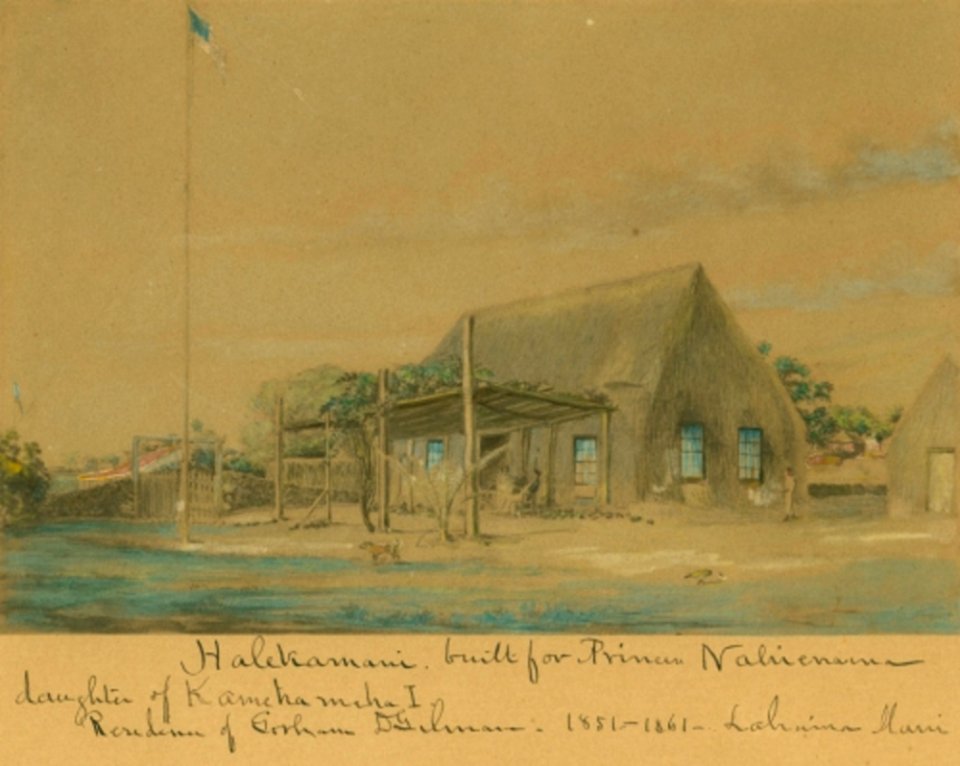 Halekamani. built for Princess Nahienaena
daughter of Kamehameha I
Residence of Gorham D Gilman. 1851-1861- Lahaina Maui